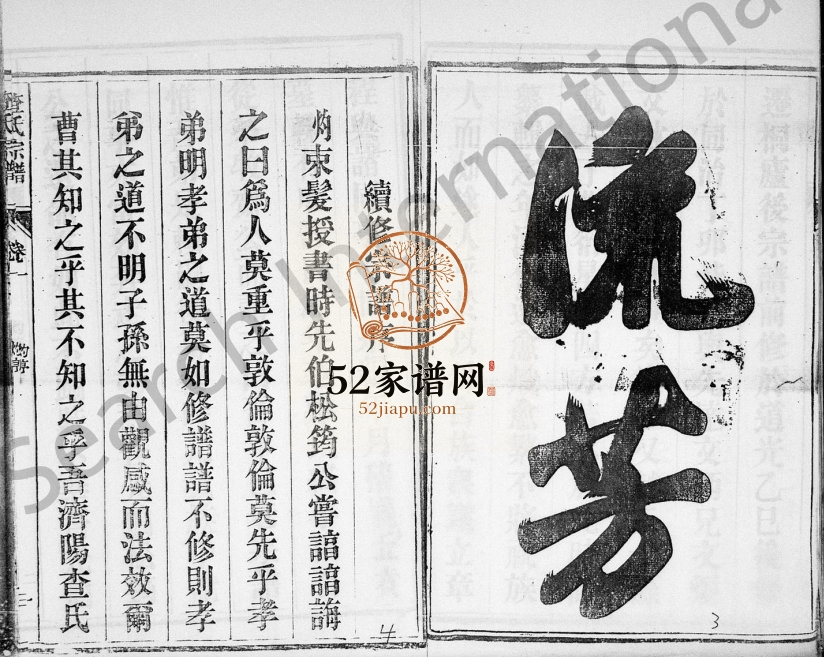 流芳
3
續修宗譜序
灼束髮授書時先伯松筠公嘗諄諄誨
之曰爲人莫重乎敦倫敦倫莫先乎孝
弟明孝弟之道莫如修譜譜不修則孝
弟之道不明子孫無由觀感而法效爾
曹其知之乎其不知之乎吾濟陽查氏
4
查氏宗譜
卷
52家谱网
52jiapu.com
Search International